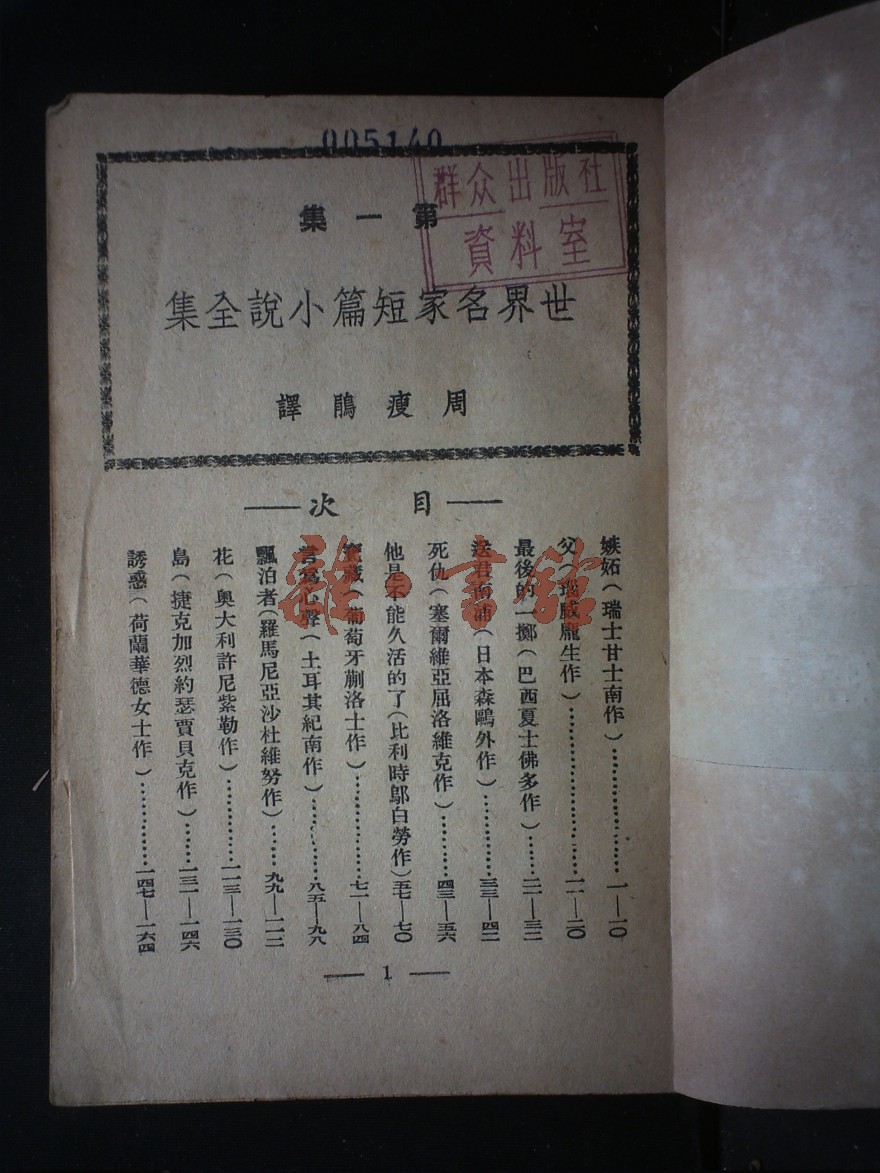 005140
群众出版社
資料室
第一集
世界名家短篇小說全集
周瘦鵑譯
目次
嫉妬(瑞士甘士南作)…………一—一〇
父(瑙威龐生作)…………一一—二〇
最後的一擲(巴西夏士佛多作)……二一—三二
送君南浦(日本森鷗外作)………三三—四二
死仇(塞爾維亞屈洛維克作)………四三—五六
他是不能久活的了(比利時鄔白勞作)五七—七〇
寶藏(葡萄牙蒯洛士作)…………七一—八四
言爲心聲(土耳其紀南作)………八五—九八
飄泊者(羅馬尼亞沙杜維努作)……九九—一一二
花(奧大利許尼紫勒作)…………一一三—一三〇
島(捷克加烈約瑟賈貝克作)……一三一—一四六
誘惑(荷蘭華德女士作)…………一四七—一六四
— 1 —
雜·書館